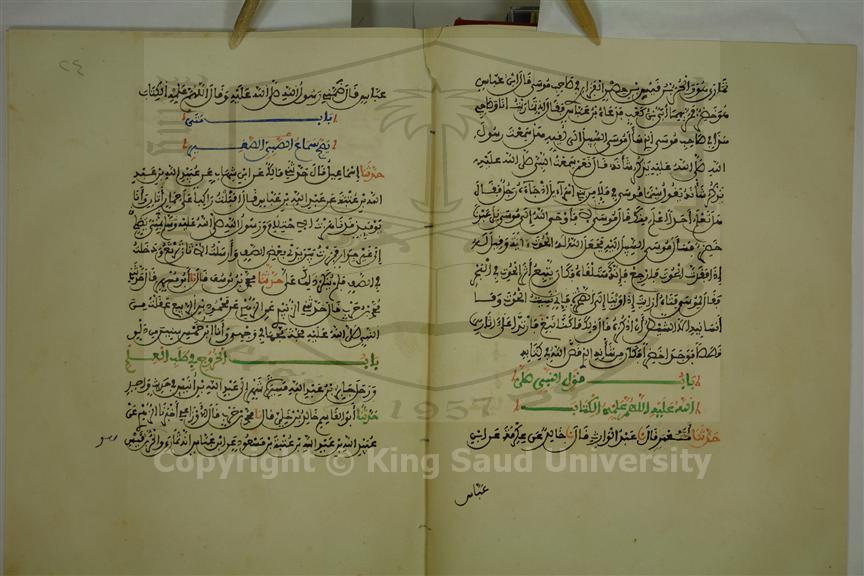 تمارى هو والحر بن قيس بن حصن الفزاري في صاحب موسى قال ابن عباس
هو خضر فمر بهما أبي بن كعب فدعاه ابن عباس فقال إني تماريت أنا وصاحبي
هذا في صاحب موسى الذي سأل موسى السبيل إلى لقيه هل سمعت رسول
الله صلى الله عليه يذكر شأنه قال نعم سمعت النبي صلى الله عليه
يذكر شأنه يقول بينما موسى في ملإ من بني إسرائيل إذ جاءه رجل فقال
هل تعلم أحدا أعلم منك قال موسى لا فأوحى الله إلى موسى بلى عبدنا
خضر فسأل موسى السبيل إليه فجعل الله له الحوت آية وقيل له
إذا فقدت الحوت فارجع فإنك ستلقاه فكان يتبع أثر الحوت في البحر
فقال لموسى فتاه أرأيت إذ أوينا إلى الصخرة فإني نسيت الحوت وما
أنسانيه إلا الشيطان أن أذكره قال ذلك ما كنا نبغ فارتدا على آثارهما
قصصا فوجدا خضرا فكان من شأنهما ما قص الله في كتابه
باب قول النبي صلى
الله عليه اللهم علمه الكتاب
حدثنا أبو معمر قال نا عبد الوارث قال نا خالد عن عكرمة عن ابن
عباس
٢٤
عباس قال ضمني رسول الله صلى الله عليه وقال اللهم علمه الكتاب
باب متى
يصح سماع الصبي الصغير
حدثنا إسماعيل قال حدثني مالك عن ابن شهاب عن عبيد الله بن عبد
الله بن عتبة عن عبد الله بن عباس قال أقبلت راكبا على حمار أتان وأنا
يومئذ قد ناهزت الاحتلام ورسول الله صلى الله عليه وسلم يصلي بمنى
إلى غير جدار فمررت بين يدي بعض الصف وأرسلت الأتان ترتع ودخلت
في الصف فلم ينكر ذلك علي حدثنا محمد بن يوسف قال نا أبو مسهر قال حدثني
محمد بن حرب قال حدثني الزبيدي عن الزهري عن محمود بن الربيع عقلت من
النبي صلى الله عليه مجة مجها في وجهي وأنا ابن خمس سنين من دلو
باب الخروج في طلب العلم
ورحل جابر بن عبد الله مسيرة شهر إلى عبد الله بن أنيس في حديث واحد
حدثنا أبو القاسم خالد بن خلي قال نا محمد بن حرب قال الأوزاعي أخبرنا الزهري عن
عبيد الله بن عبد الله بن عتبة بن مسعود عن ابن عباس أنه تمارى هو والحر بن قيس
1957
Copyright © King Saud University